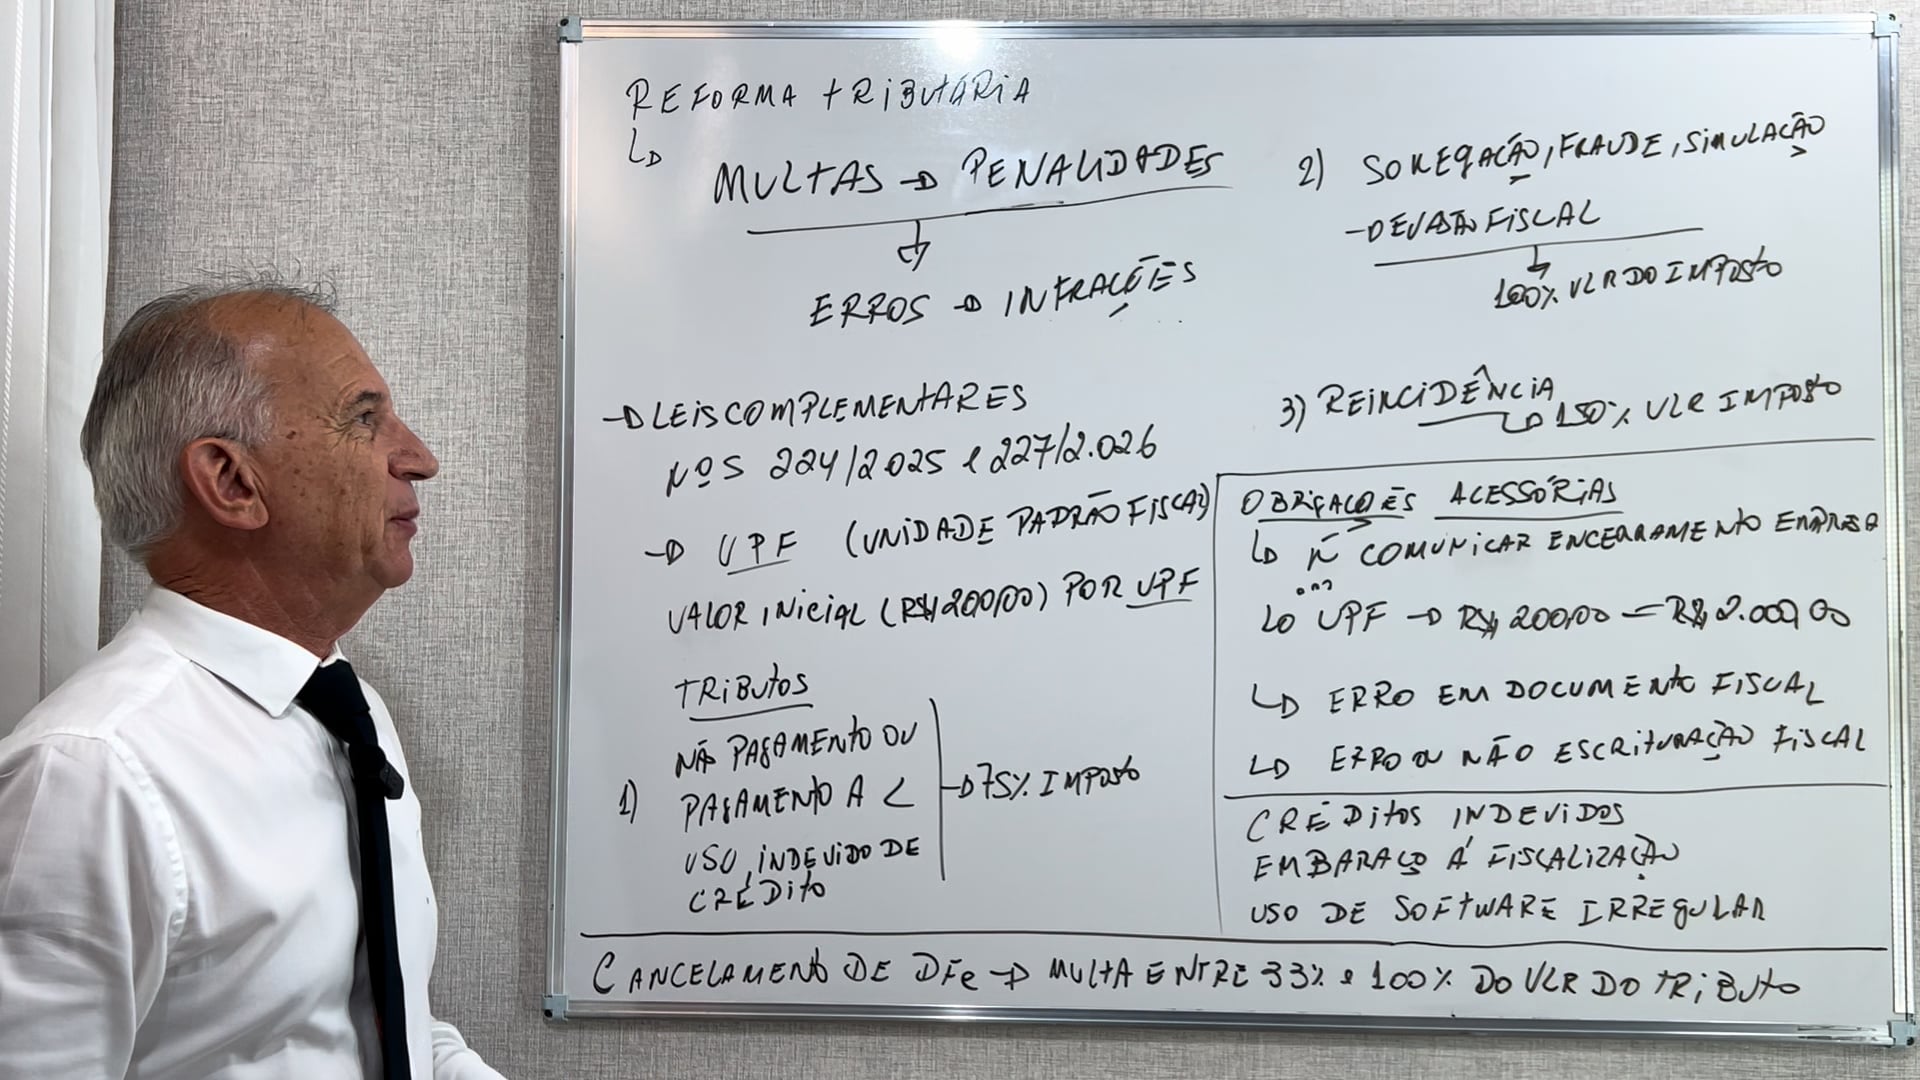 REFORMA TRIBUTÁRIA
MULTAS → PENALIDADES
ERROS → INFRAÇÕES
→ LEIS COMPLEMENTARES
Nºs 224/2025 e 227/2.026
→ UPF (UNIDADE PADRÃO FISCAL)
VALOR INICIAL (R$ 200,00) POR UPF
TRIBUTOS
1)
NÃO PAGAMENTO OU
PAGAMENTO A <
USO INDEVIDO DE
CRÉDITO
→ 75% IMPOSTO
2) SONEGAÇÃO, FRAUDE, SIMULAÇÃO
→ EVASÃO FISCAL
100% VLR DO IMPOSTO
3) REINCIDÊNCIA
→ 150% VLR IMPOSTO
OBRIGAÇÕES ACESSÓRIAS
→ Ñ COMUNICAR ENCERRAMENTO EMPRESA
10 UPF → R$ 200,00 = R$ 2.000,00
→ ERRO EM DOCUMENTO FISCAL
→ ERRO OU NÃO ESCRITURAÇÃO FISCAL
CRÉDITOS INDEVIDOS
EMBARAÇO Á FISCALIZAÇÃO
USO DE SOFTWARE IRREGULAR
CANCELAMENTO DE DFe → MULTA ENTRE 33% e 100% DO VLR DO TRIBUTO